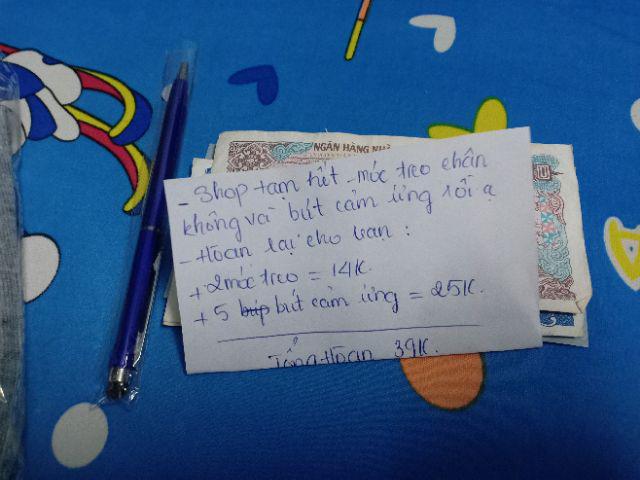 NGÂN HÀNG NH
- Shop tạm hết móc treo chân
không và bút cảm ứng rồi ạ
- Hoàn lại cho bạn :
+ 2 móc treo = 14K.
+ 5 bút cảm ứng = 25K.
Tổng hoàn 39K.